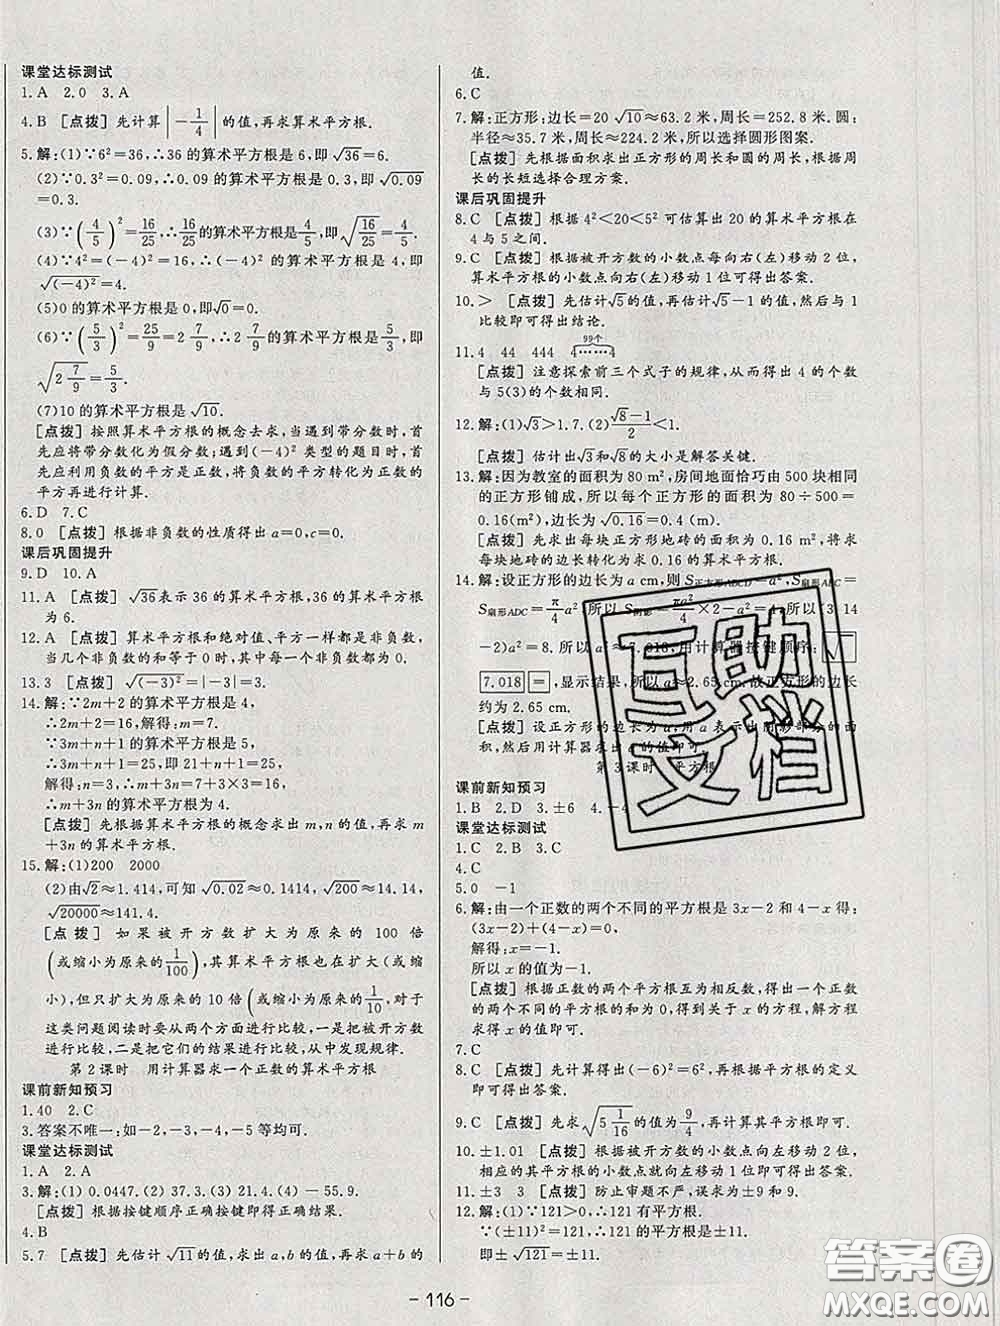 课堂达标测试
1.A 2.0 3.A
4.B [点拨]先计算|-1/4|的值,再求算术平方根.
5.解:(1)∵6²=36,∴36的算术平方根是6,即√36=6.
(2)∵0.3²=0.09,∴0.09的算术平方根是0.3,即√0.09
=0.3.
(3)∵(4/5)²=16/25,∴16/25的算术平方根是4/5,即√(16/25)=4/5.
(4)∵4²=(-4)²=16,∴(-4)²的算术平方根是4,即
√(-4)²=4.
(5)0的算术平方根是0,即√0=0.
(6)∵(5/3)²=25/9=2 7/9,∴2 7/9的算术平方根是5/3,即
√(2 7/9)=5/3.
(7)10的算术平方根是√10.
[点拨]按照算术平方根的概念去求,当遇到带分数时,首
先应将带分数化为假分数;遇到(-4)²类型的题目时,首
先应利用负数的平方是正数,将负数的平方转化为正数的
平方再进行计算.
6.D 7.C
8.0 [点拨]根据非负数的性质得出a=0,c=0.
课后巩固提升
9.D 10.A
11.A [点拨]√36表示36的算术平方根,36的算术平方根
为6.
12.A [点拨]算术平方根和绝对值、平方一样都是非负数,
当几个非负数的和等于0时,其中每一个非负数都是0.
13.3 [点拨]√(-3)²=|-3|=3.
14.解:∵2m+2的算术平方根是4,
∴2m+2=16,解得:m=7.
∵3m+n+1的算术平方根是5,
∴3m+n+1=25,即21+n+1=25,
解得:n=3,∴m+3n=7+3×3=16,
∴m+3n的算术平方根为4.
[点拨]先根据算术平方根的概念求出m,n的值,再求m
+3n的算术平方根即可.
15.解:(1)200 2000
(2)由√2≈1.414,可知√0.02≈0.1414,√200≈14.14,
√20000≈141.4.
[点拨]如果被开方数扩大为原来的100倍
(或缩小为原来的1/100),其算术平方根也在扩大(或缩
小),但只扩大为原来的10倍(或缩小为原来的1/10),对于
这类问题阅读时要从两个方面进行比较,一是把被开方数
进行比较,二是把它们的结果进行比较,从中发现规律.
第2课时 用计算器求一个正数的算术平方根
课前新知预习
1.40 2.C
3.答案不唯一:如-2,-3,-4,-5等均可.
课堂达标测试
1.A 2.A
3.解:(1)0.0447.(2)37.3.(3)21.4.(4)-55.9.
[点拨]按键顺序正确按键即得正确结果.
4.B
5.7 [点拨]先估计√11的值,求出a,b的值,再求a+b的
值.
6.C
7.解:正方形:边长=20√10≈63.2米,周长=252.8米.圆:
半径≈35.7米,周长≈224.2米,所以选择圆形图案.
[点拨]先根据面积求出正方形的周长和圆的周长,根据周
长的长短选择合理方案.
课后巩固提升
8.C [点拨]根据4²<20<5²可估算出20的算术平方根在
4与5之间.
9.C [点拨]根据被开方数的小数点每向右(左)移动2位,
算术平方根的小数点向右(左)移动1位可得出答案.
10.> [点拨]先估计√5的值,再估计√5-1的值,然后与1
比较即可得出结论.
11.4 44 444 99个 4……4
[点拨]注意探索前三个式子的规律,从而得出4的个数
与5(3)的个数相同.
12.解:(1)√3>1.7.(2)(√8-1)/2<1.
[点拨]估计出√3和√8的大小是解答关键.
13.解:因为教室的面积为80m²,房间地面恰巧由500块相同
的正方形铺成,所以每个正方形的面积为80÷500=
0.16(m²),边长为√0.16=0.4(m).
[点拨]先求出每块正方形地砖的面积为0.16m²,将求
每块地砖的边长转化为求0.16的算术平方根.
14.解:设正方形的边长为a cm,则S正方形ABCD=a²,S扇形ABC=
S扇形ADC=π/4 a²,所以S阴影=πa²/4×2-a²=1/2×(3.14
-2)a²=8.所以a²≈7.018,用计算器按键顺序:√
7.018 =,显示结果,所以a≈2.65cm.故正方形的边长
约为2.65cm.
[点拨]设正方形的边长为a,用a表示出阴影部分的面
积,然后用计算器求出a的值即可.
第3课时 平方根
课前新知预习
1.B 2.D 3.±6 4.-4
课堂达标测试
1.C 2.B 3.C
4.C
5.0 -1
6.解:由一个正数的两个不同的平方根是3x-2和4-x得:
(3x-2)+(4-x)=0,
解得:x=-1.
所以x的值为-1.
[点拨]根据正数的两个平方根互为相反数,得出一个正数
的两个不同的平方根的和为0,得到关于x的方程,解方程
求得x的值即可.
7.C
8.C [点拨]先得出(-6)²=6²,再根据平方根的定义
即可得出答案.
9.C [点拨]先求√(5 1/16)的值为9/4,再计算其平方根即可.
10.±1.01 [点拨]根据被开方数的小数点向左移动2位,
相应的其平方根的小数点就向左移动1位即可得出答案.
11.±3 3 [点拨]防止审题不严,误求为±9和9.
12.解:(1)∵121>0,∴121有平方根.
∵(±11)²=121,∴121的平方根是±11.
即±√121=±11.
互助
文档
答案圈
MXQE.COM
- 116 -